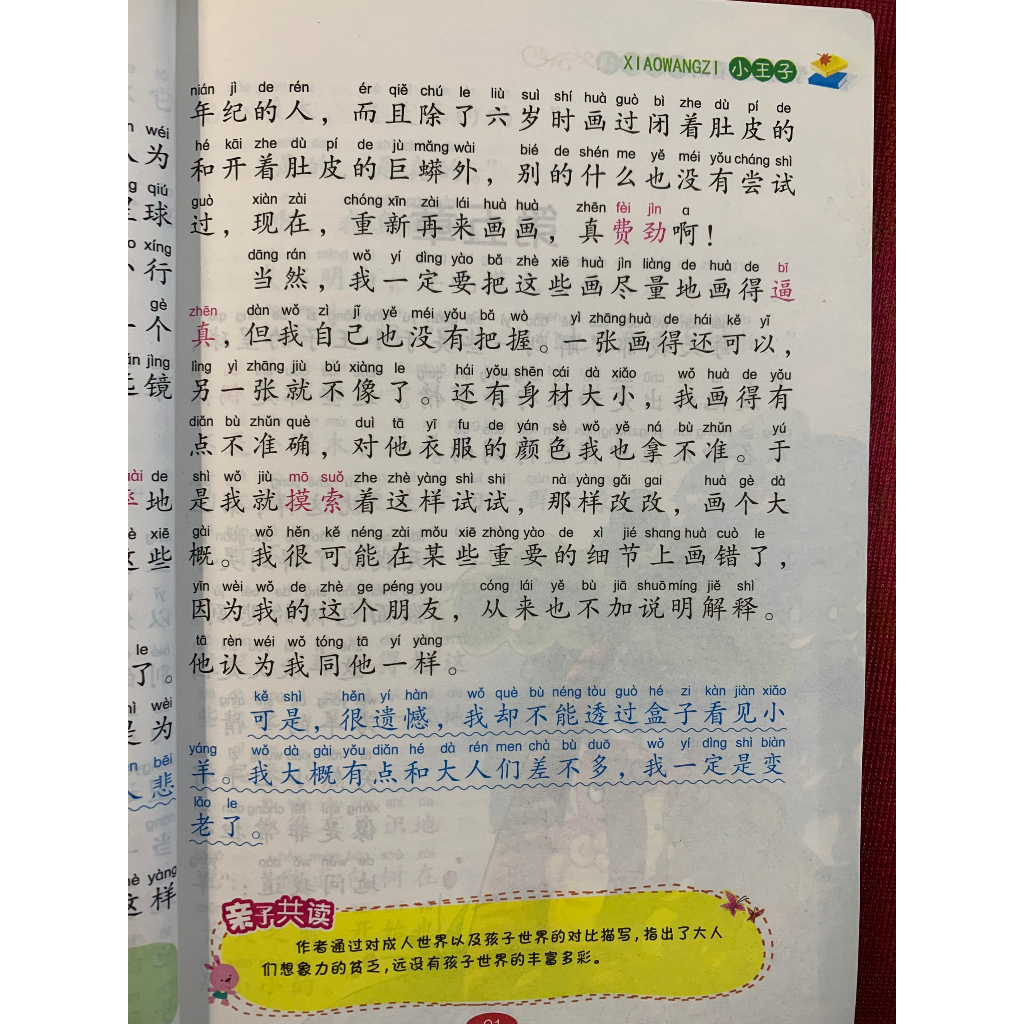 XIAOWANGZI 小王子
nián jì de rén ér qiě chú le liù suì shí huà guò bì zhe dù pí de
年纪的人，而且除了六岁时画过闭着肚皮的
hé kāi zhe dù pí de jù mǎng wài bié de shén me yě méi yǒu cháng shì
和开着肚皮的巨蟒外，别的什么也没有尝试
guò xiàn zài chóng xīn zài lái huà huà zhēn fèi jìn ɑ
过，现在，重新再来画画，真费劲啊！
dāng rán wǒ yí dìng yào bǎ zhè xiē huà jìn liàng de huà de bī
当然，我一定要把这些画尽量地画得逼
zhēn dàn wǒ zì jǐ yě méi yǒu bǎ wò yì zhāng huà de hái kě yǐ
真，但我自己也没有把握。一张画得还可以，
lìng yì zhāng jiù bú xiàng le hái yǒu shēn cái dà xiǎo wǒ huà de yǒu
另一张就不像了。还有身材大小，我画得有
diǎn bù zhǔn què duì tā yī fu de yán sè wǒ yě ná bù zhǔn yú
点不准确，对他衣服的颜色我也拿不准。于
shì wǒ jiù mō suǒ zhe zhè yàng shì shi nà yàng gǎi gai huà gè dà
是我就摸索着这样试试，那样改改，画个大
gài wǒ hěn kě néng zài mǒu xiē zhòng yào de xì jié shang huà cuò le
概。我很可能在某些重要的细节上画错了，
yīn wèi wǒ de zhè ge péng you cóng lái yě bù jiā shuō míng jiě shì
因为我的这个朋友，从来也不加说明解释。
tā rèn wéi wǒ tóng tā yí yàng
他认为我同他一样。
kě shì hěn yí hàn wǒ què bù néng tòu guò hé zi kàn jiàn xiǎo
可是，很遗憾，我却不能透过盒子看见小
yáng wǒ dà gài yǒu diǎn hé dà rén men chà bù duō wǒ yí dìng shì biàn
羊。我大概有点和大人们差不多，我一定是变
lǎo le
老了。
亲子共读
作者通过对成人世界以及孩子世界的对比描写，指出了大人
们想象力的贫乏，远没有孩子世界的丰富多彩。